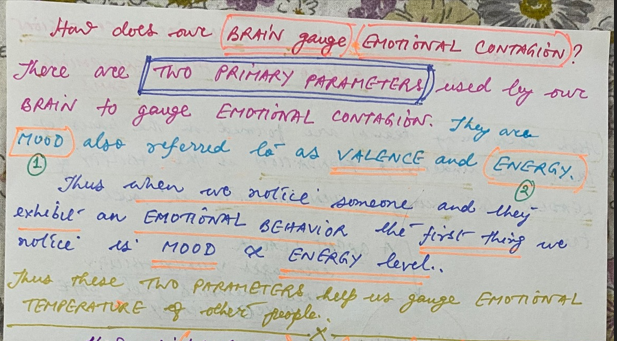 How does our BRAIN gauge EMOTIONAL CONTAGION?
There are TWO PRIMARY PARAMETERS used by our
BRAIN to gauge EMOTIONAL CONTAGION. They are
MOOD also referred to as VALENCE and ENERGY.
1 2
Thus when we notice someone and they
exhibit an EMOTIONAL BEHAVIOR the first thing we
notice is MOOD & ENERGY level..
Thus these TWO PARAMETERS help us gauge EMOTIONAL
TEMPERATURE of other people..
x